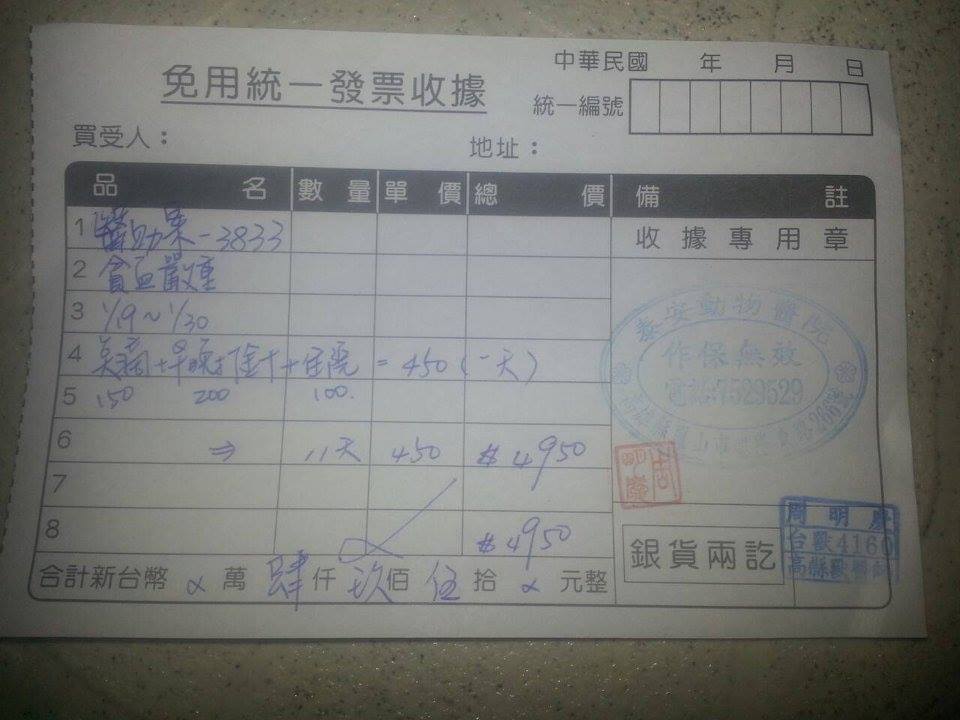 中華民國 年 月 日
免用統一發票收據
統一編號
買受人： 地址：
品 名 數 量 單 價 總 價 備 註
收 據 專 用 章
1 醫助案-3833
2 貧血嚴重
3 1/19~1/30
4 +早晚打針+住院 = 450 (一天)
5 150 200 100
6 ⇒ 11天 450 $4950
7
8 $4950
合計新台幣 萬 肆 仟 玖 佰 伍 拾 元整
泰安動物醫院
作保無效
電話:7529529
銀貨兩訖
周明慶
台獸4160